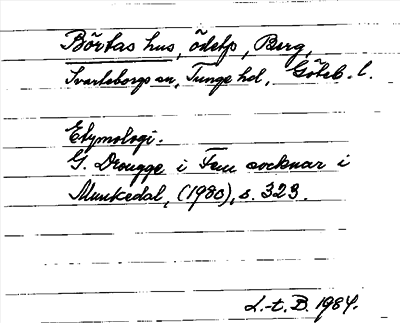 Börtas hus, ödetp, Berg,
Svarteborgs sn, Tunge hd, Göteb. l.
Etymologi.
G. Drougge i Fem socknar i
Munkedal, (1980), s. 323.
L.-t. B. 1984.